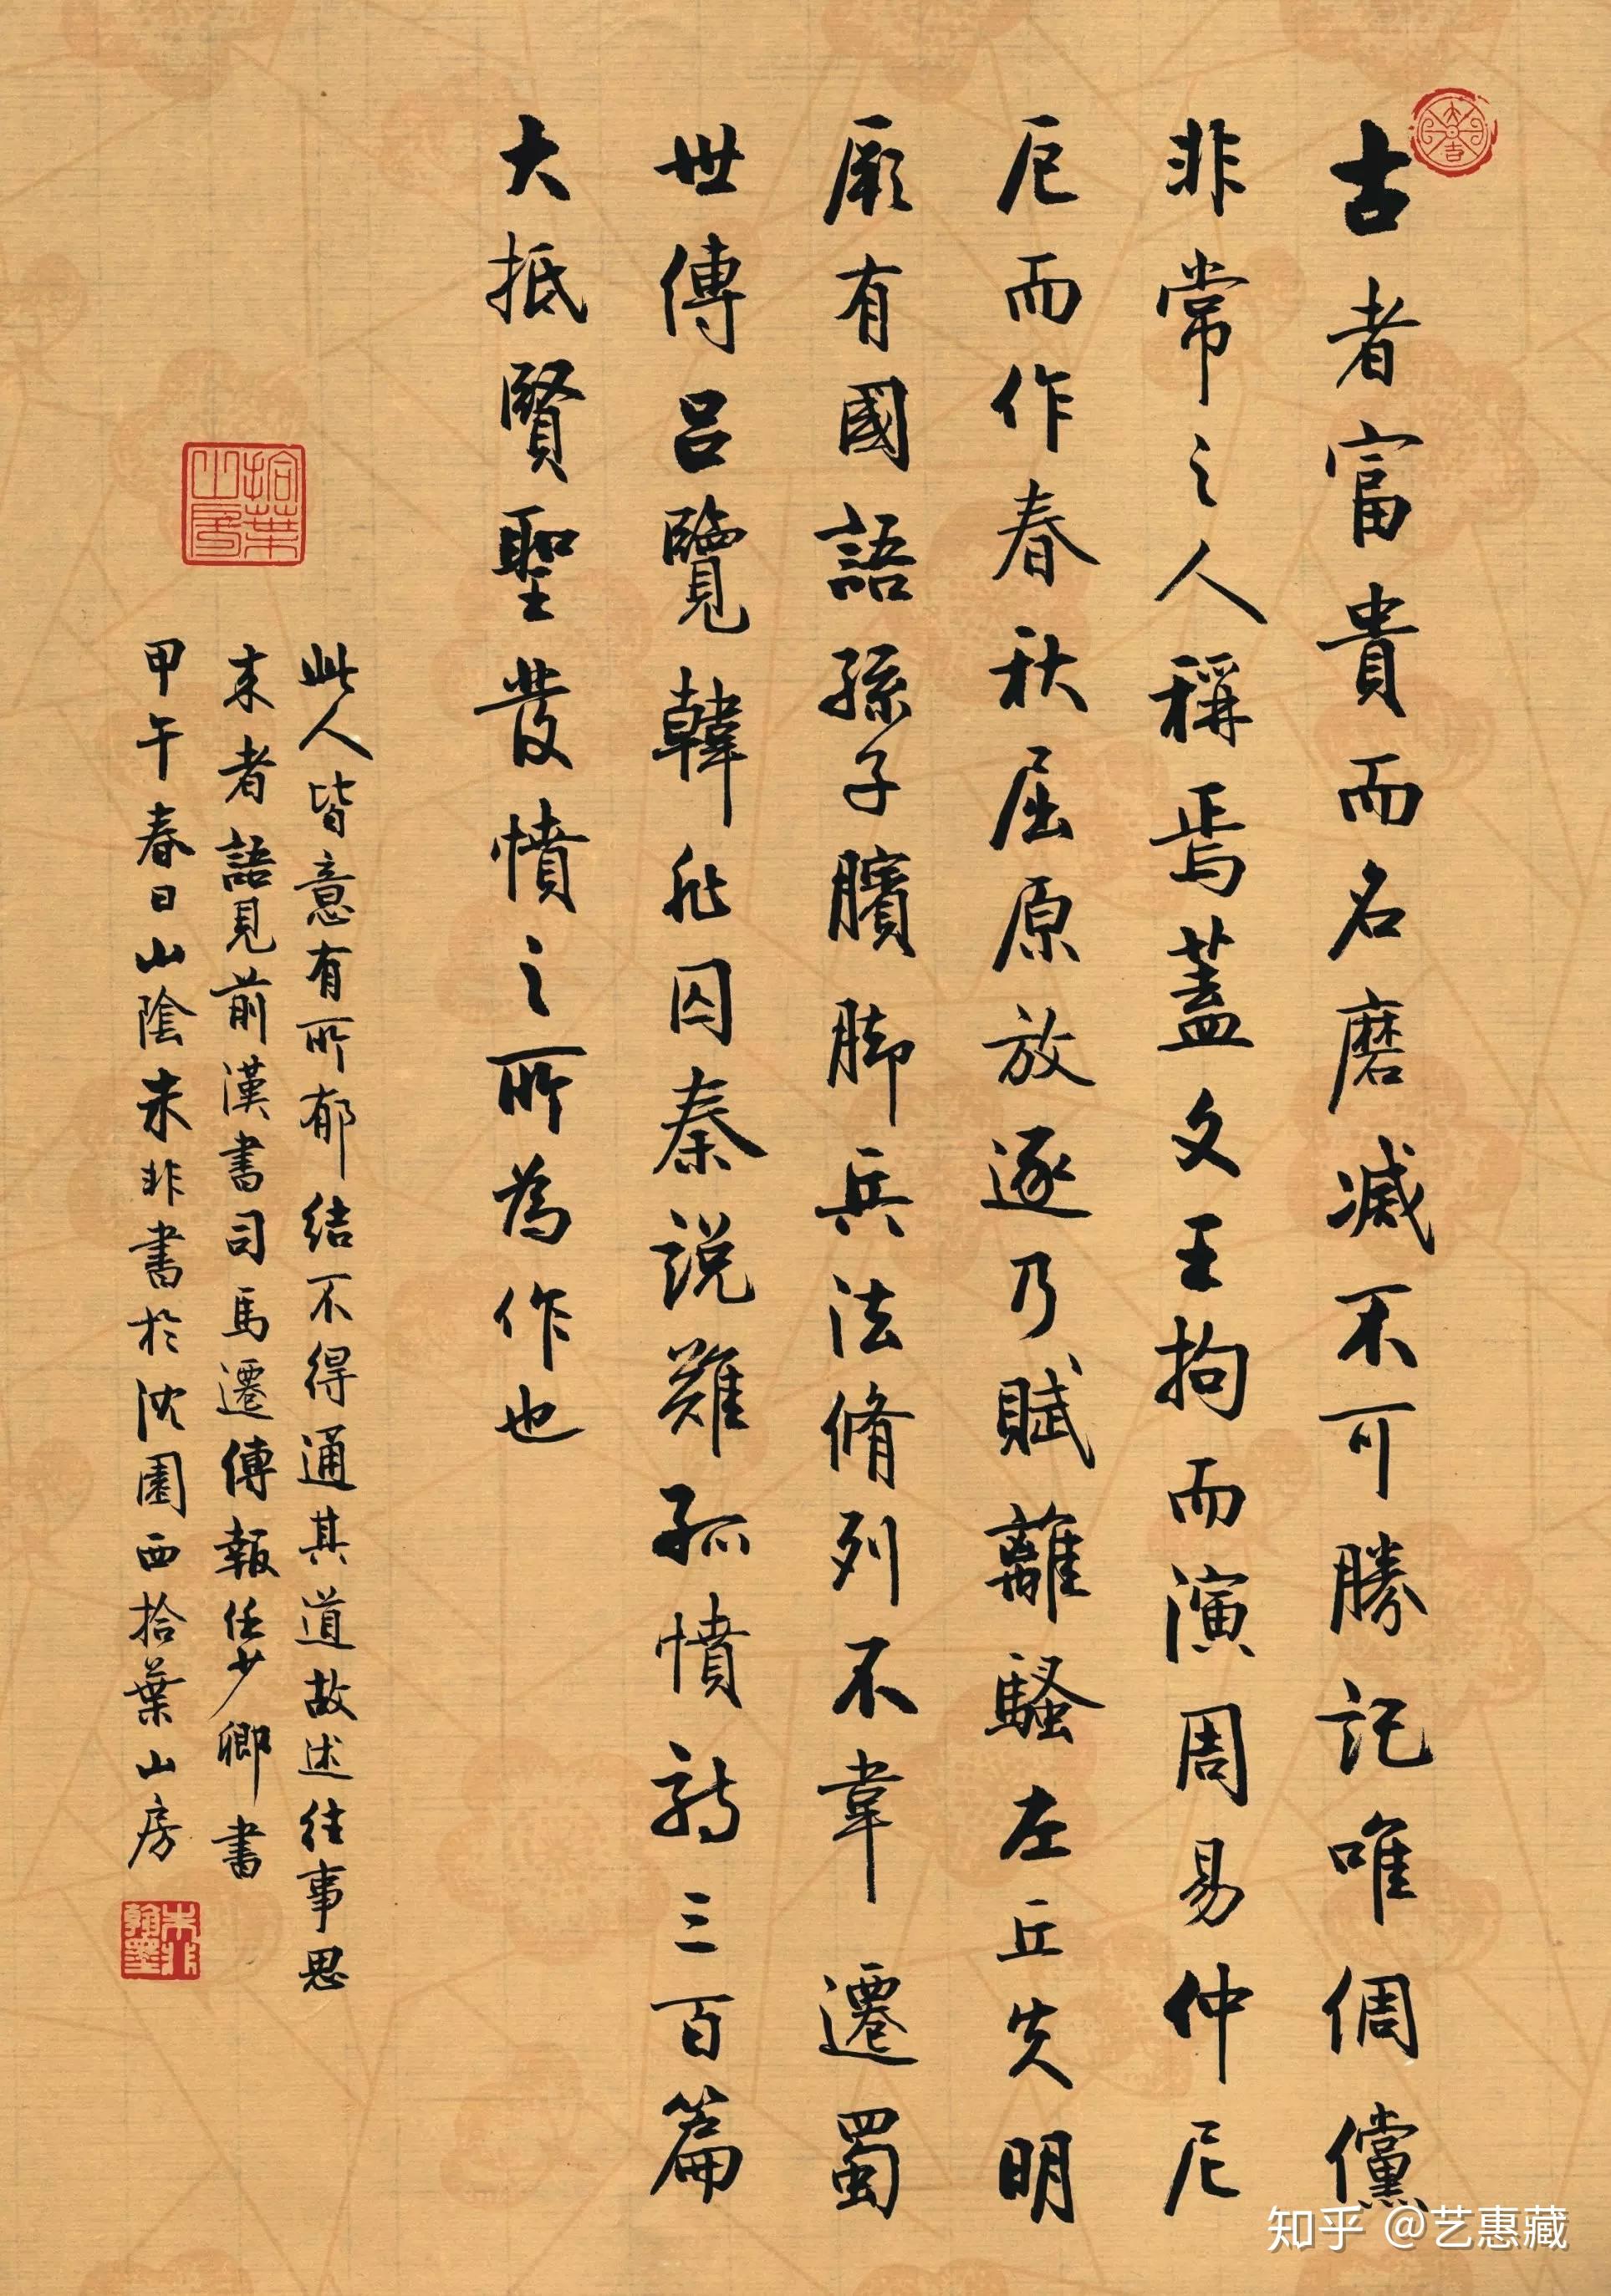 古者富貴而名磨滅不可勝記唯倜儻
非常之人稱焉蓋文王拘而演周易仲尼
厄而作春秋屈原放逐乃賦離騷左丘失明
厥有國語孫子臏脚兵法脩列不韋遷蜀
世傳呂覽韓非囚秦説難孤憤詩三百篇
大抵賢聖發憤之所為作也
此人皆意有所郁結不得通其道故述往事思
来者語見前漢書司馬遷傳報任少卿書
甲午春日山陰朱非書於沈園西拾葉山房
大吉
拾葉山房
朱非翰墨
知乎 @艺惠藏